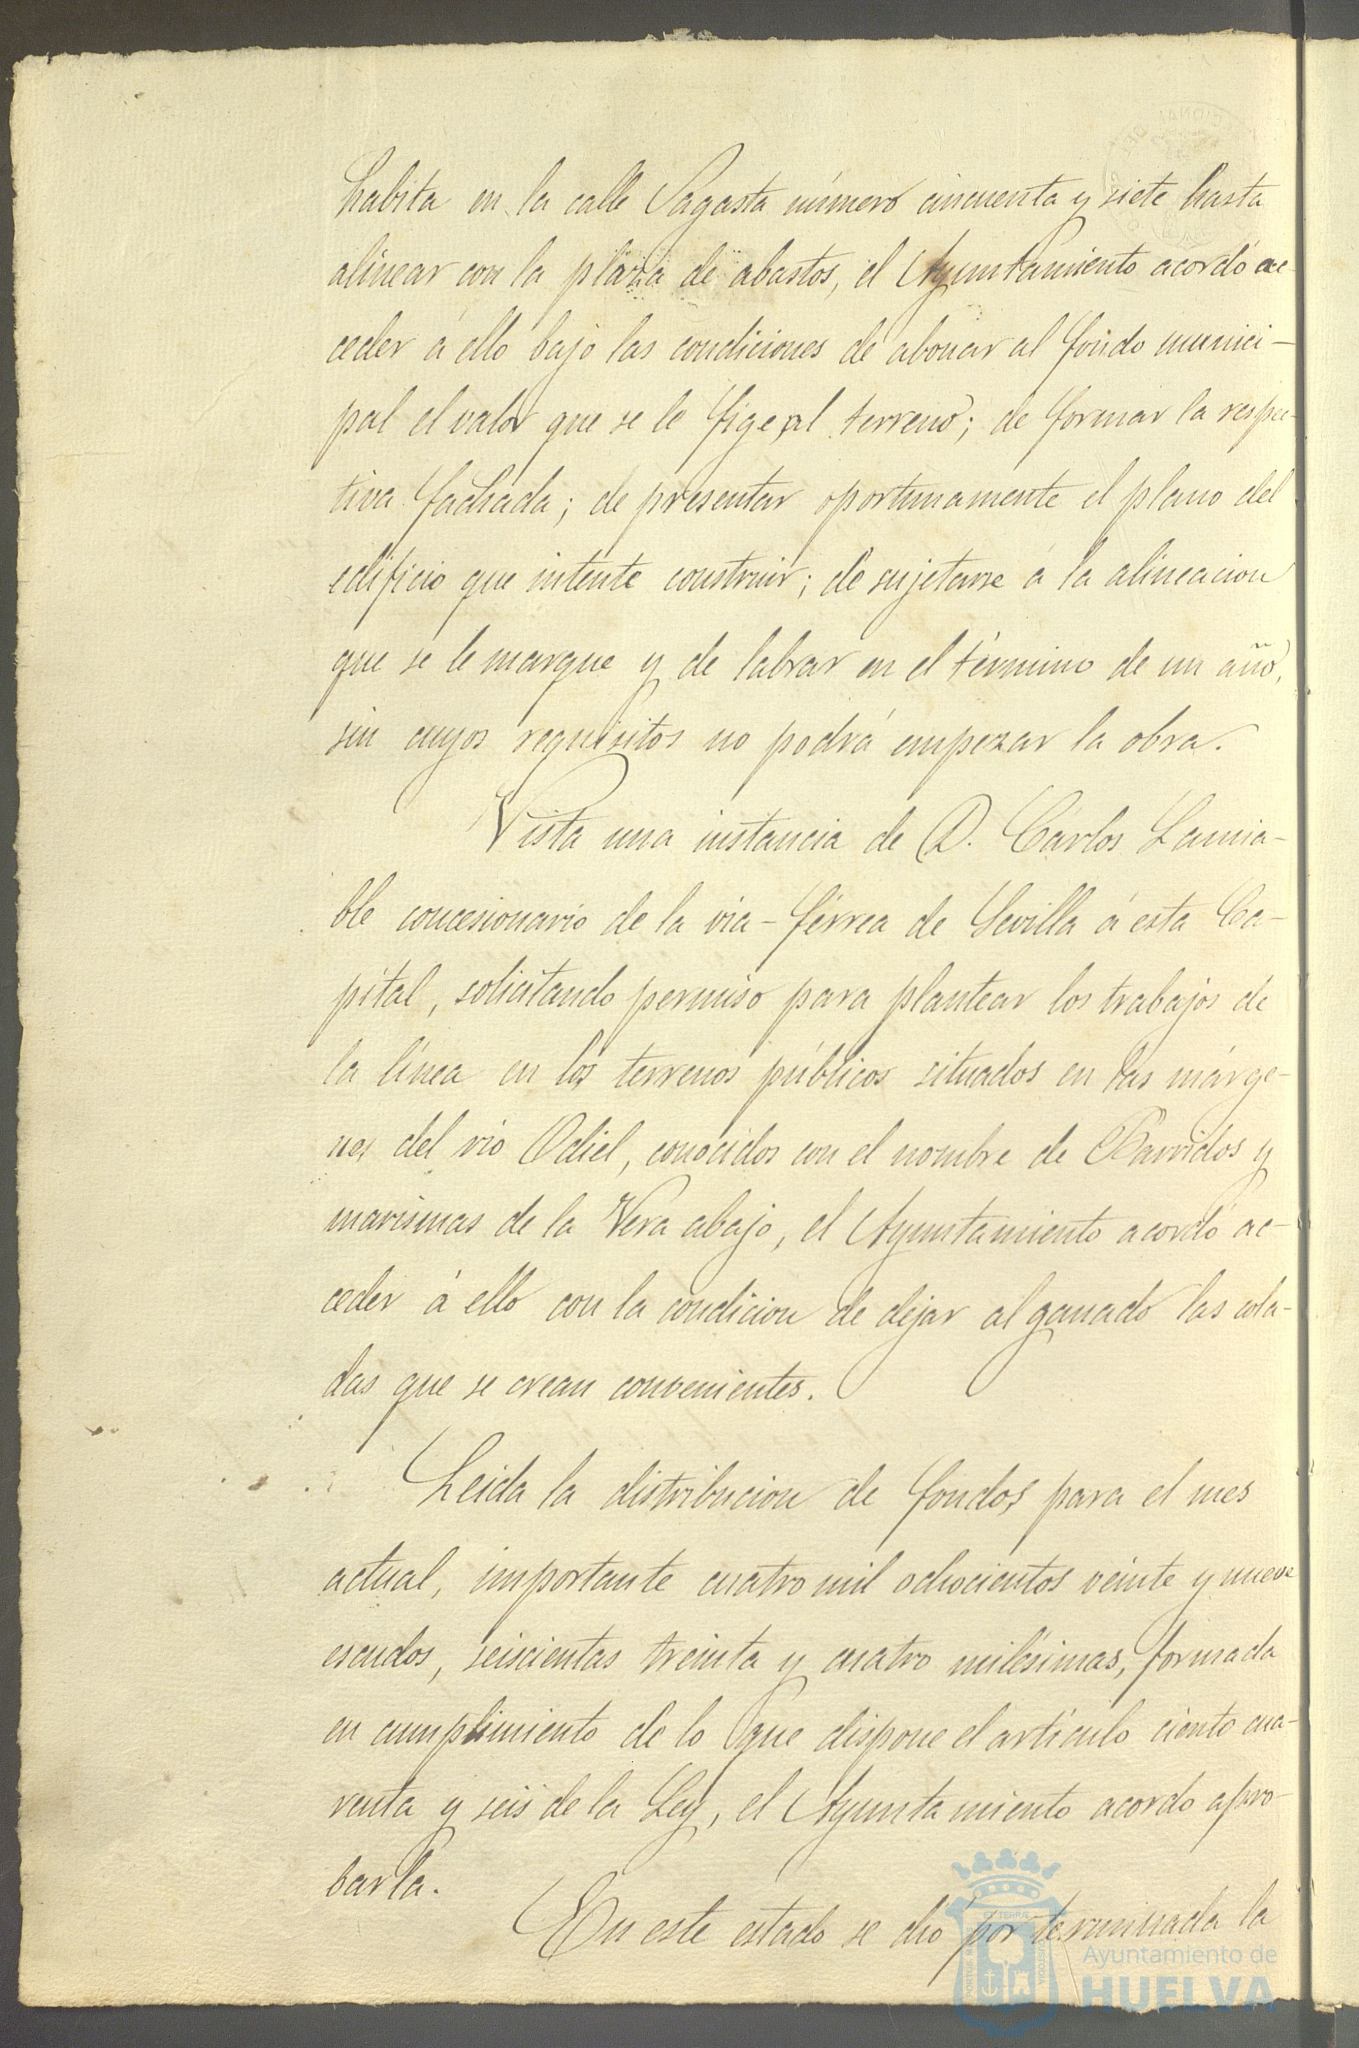 habita en la calle Sagasta número cincuenta y siete hasta
alinear con la plaza de abastos, el Ayuntamiento acordó ac-
ceder á ello bajo las condiciones de abonar al fondo munici-
pal el valor que se le fige al terreno; de formar la respec-
tiva fachada; de presentar oportunamente el plano del
edificio que intente construir; de sujetarse á la alineacion
que se le marque y de labrar en el término de un año,
sin cuyos requisitos no podrá empezar la obra.
Vista una instancia de D. Carlos Lamia-
ble concesionario de la via-férrea de Sevilla á esta Ca-
pital, solicitando permiso para plantear los trabajos de
la línea en los terrenos públicos situados en las márge-
nes del rio Odiel, conocidos con el nombre de Barridos y
marismas de la Vera abajo, el Ayuntamiento acordó ac-
ceder á ello con la condicion de dejar al ganado las cola-
das que se crean convenientes.
Leida la distribucion de fondos para el mes
actual, importante cuatro mil ochocientos veinte y nueve
escudos, seiscientas treinta y cuatro milésimas, formada
en cumplimiento de lo que dispone el artículo ciento cua-
renta y seis de la Ley, el Ayuntamiento acordo apro-
barla.
En este estado se dió por terminada la
Ayuntamiento de
HUELVA